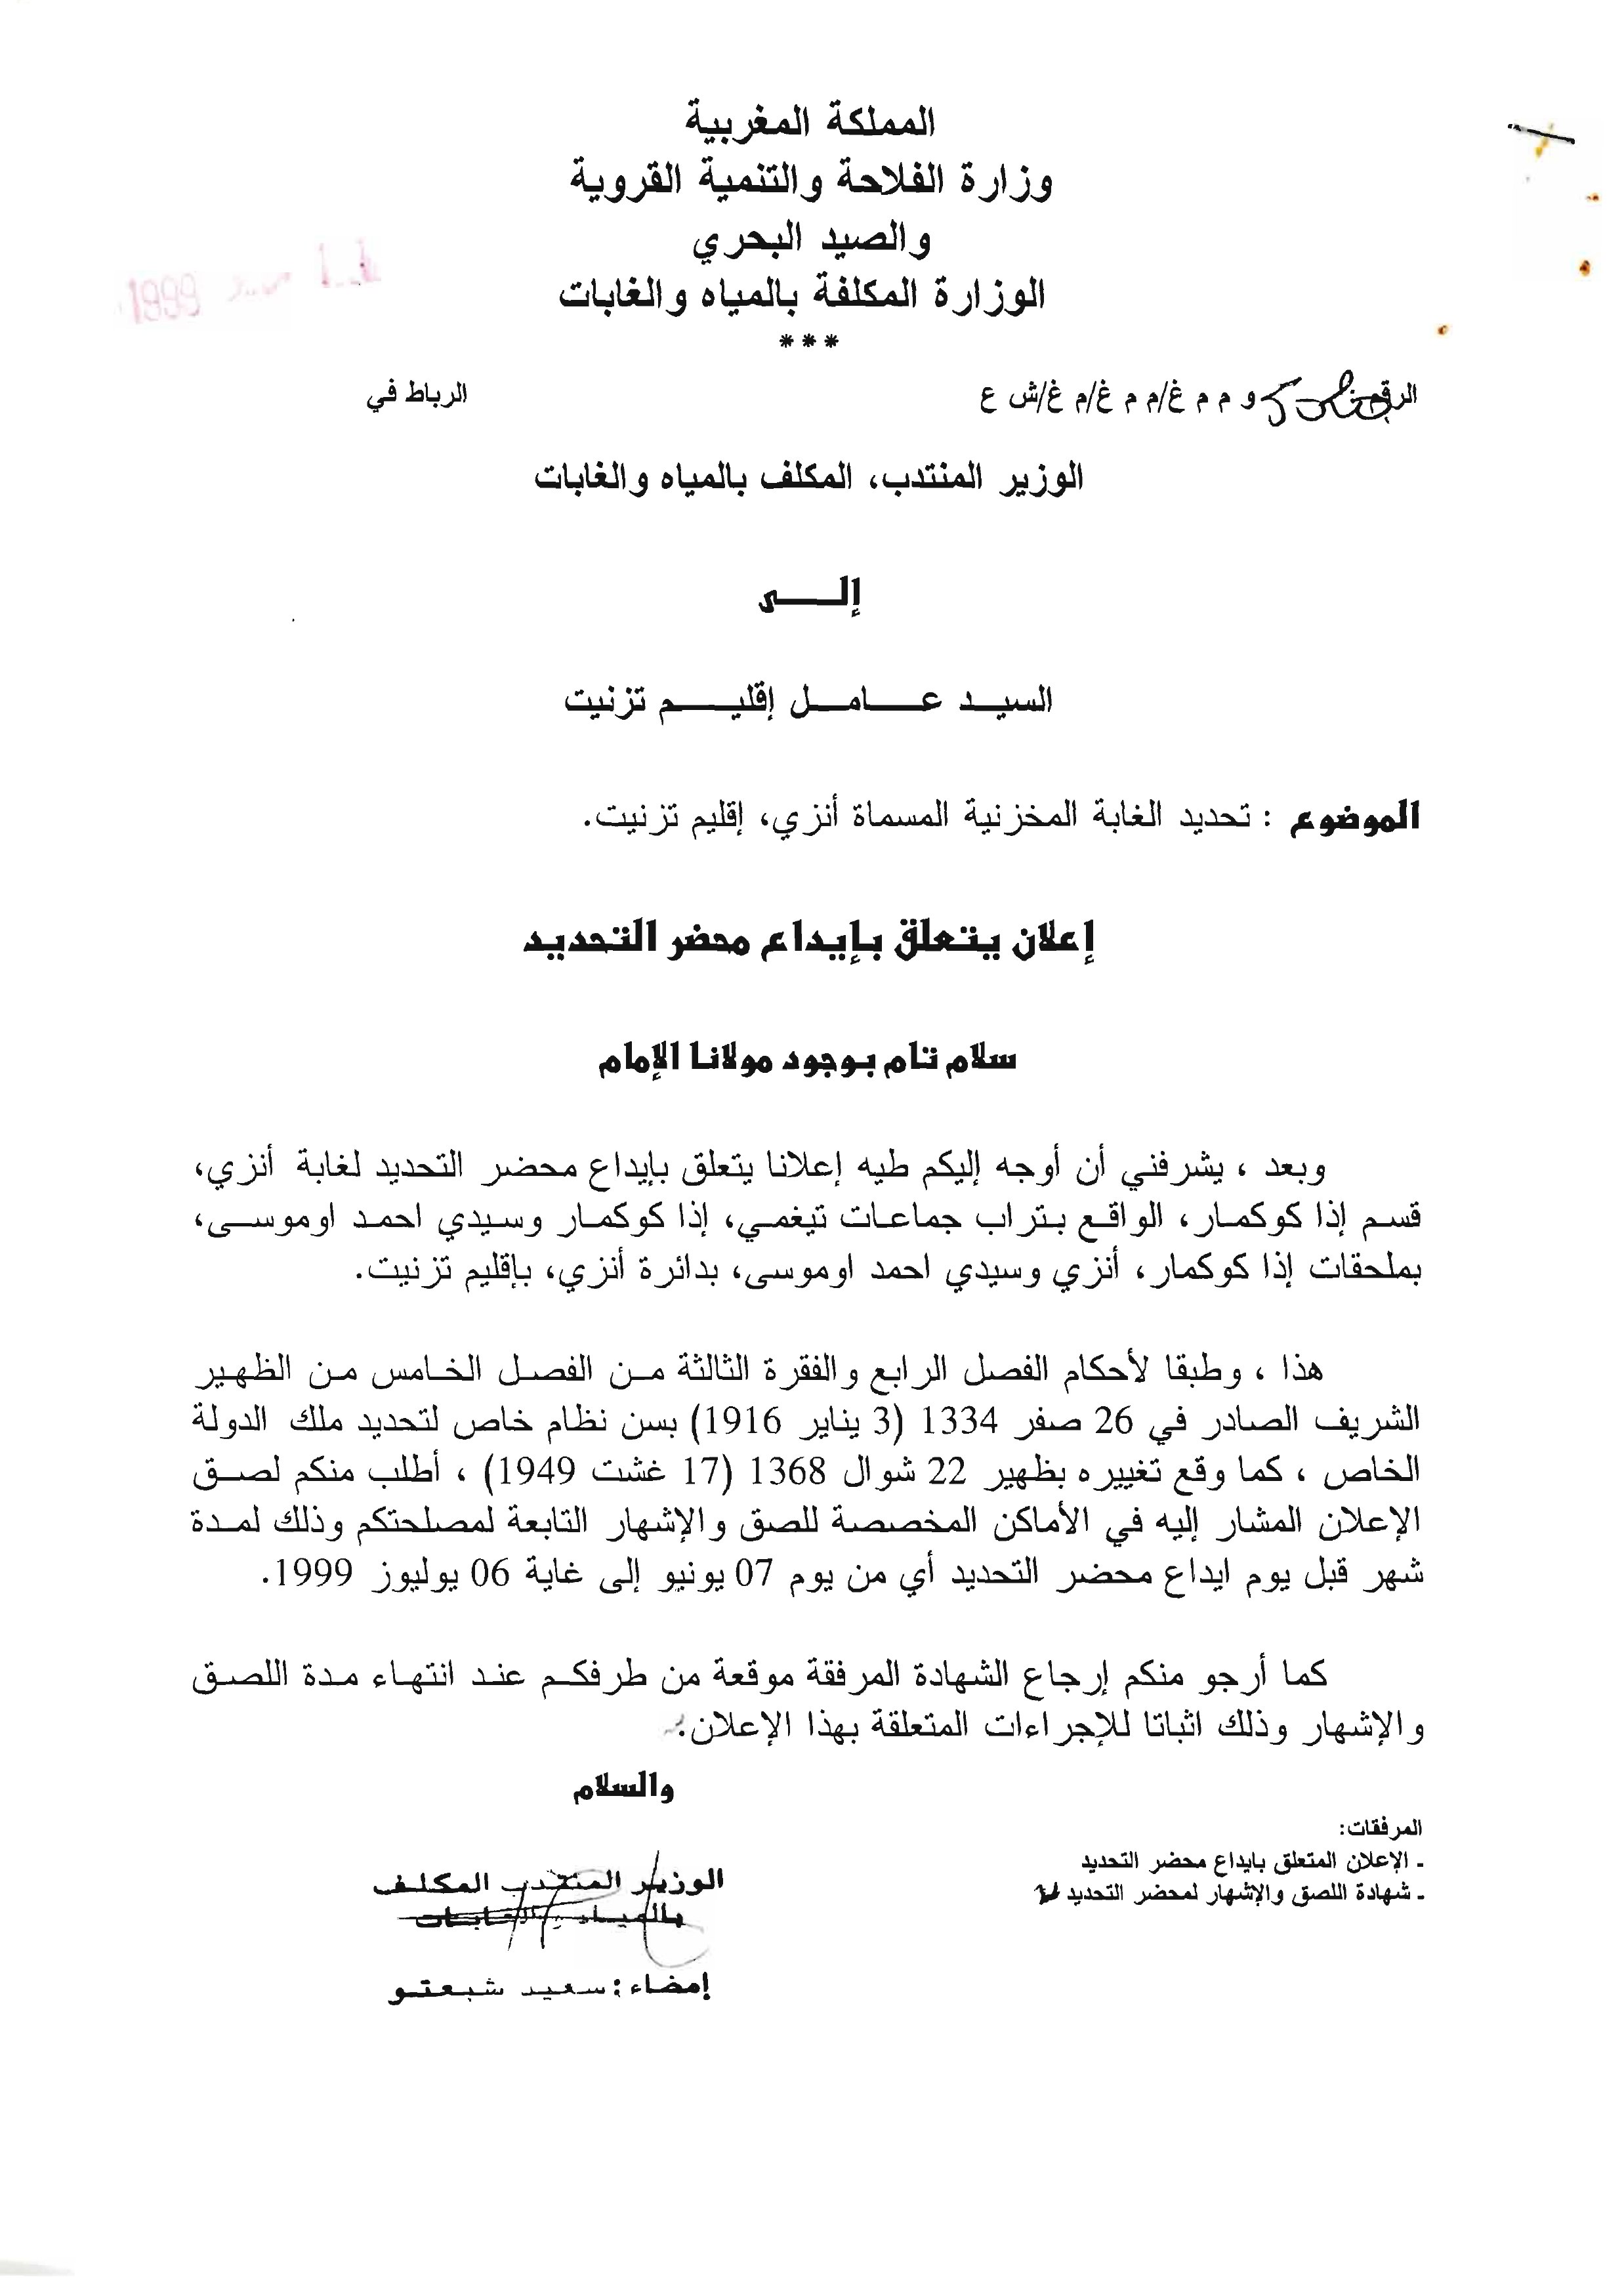 المملكة المغربية
وزارة الفلاحة والتنمية القروية
والصيد البحري
الوزارة المكلفة بالمياه والغابات
***
1999
الرقم و م م غ/م م غ/م غ/ش ع
الرباط في
الوزير المنتدب، المكلف بالمياه والغابات
إلـــــى
السيــد عــــامــــل إقليــــــم تزنيت
الموضوع : تحديد الغابة المخزنية المسماة أنزي، إقليم تزنيت.
إعلان يتعلق بإيداع محضر التحديد
سلام تام بوجود مولانا الإمام
وبعد ، يشرفني أن أوجه إليكم طيه إعلانا يتعلق بإيداع محضر التحديد لغابة أنزي،
قسم إذا كوكمـار، الواقـع بـتراب جماعـات تيغمـي، إذا كوكمـار وسـيدي احمـد اوموسـى،
بملحقات إذا كوكمار، أنزي وسيدي احمد اوموسى، بدائرة أنزي، بإقليم تزنيت.
هذا ، وطبقا لأحكام الفصل الرابع والفقرة الثالثة مـن الفصـل الخـامس مـن الظهـير
الشريف الصادر في 26 صفر 1334 (3 يناير 1916) بسن نظام خاص لتحديد ملك الدولة
الخاص ، كما وقع تغييره بظهير 22 شوال 1368 (17 غشت 1949) ، أطلب منكم لصـق
الإعلان المشار إليه في الأماكن المخصصة للصق والإشهار التابعة لمصلحتكم وذلك لمـدة
شهر قبل يوم ايداع محضر التحديد أي من يوم 07 يونيو إلى غاية 06 يوليوز 1999.
كما أرجو منكم إرجاع الشهادة المرفقة موقعة من طرفكـم عنـد انتهـاء مـدة اللصـق
والإشهار وذلك اثباتا للإجراءات المتعلقة بهذا الإعلان.
والسلام
المرفقات:
- الإعلان المتعلق بايداع محضر التحديد
- شهادة اللصق والإشهار لمحضر التحديد
الوزيـر المنتـدب المكلـف
بالميـاه والغابـات
إمضاء : سعيد شبعتو